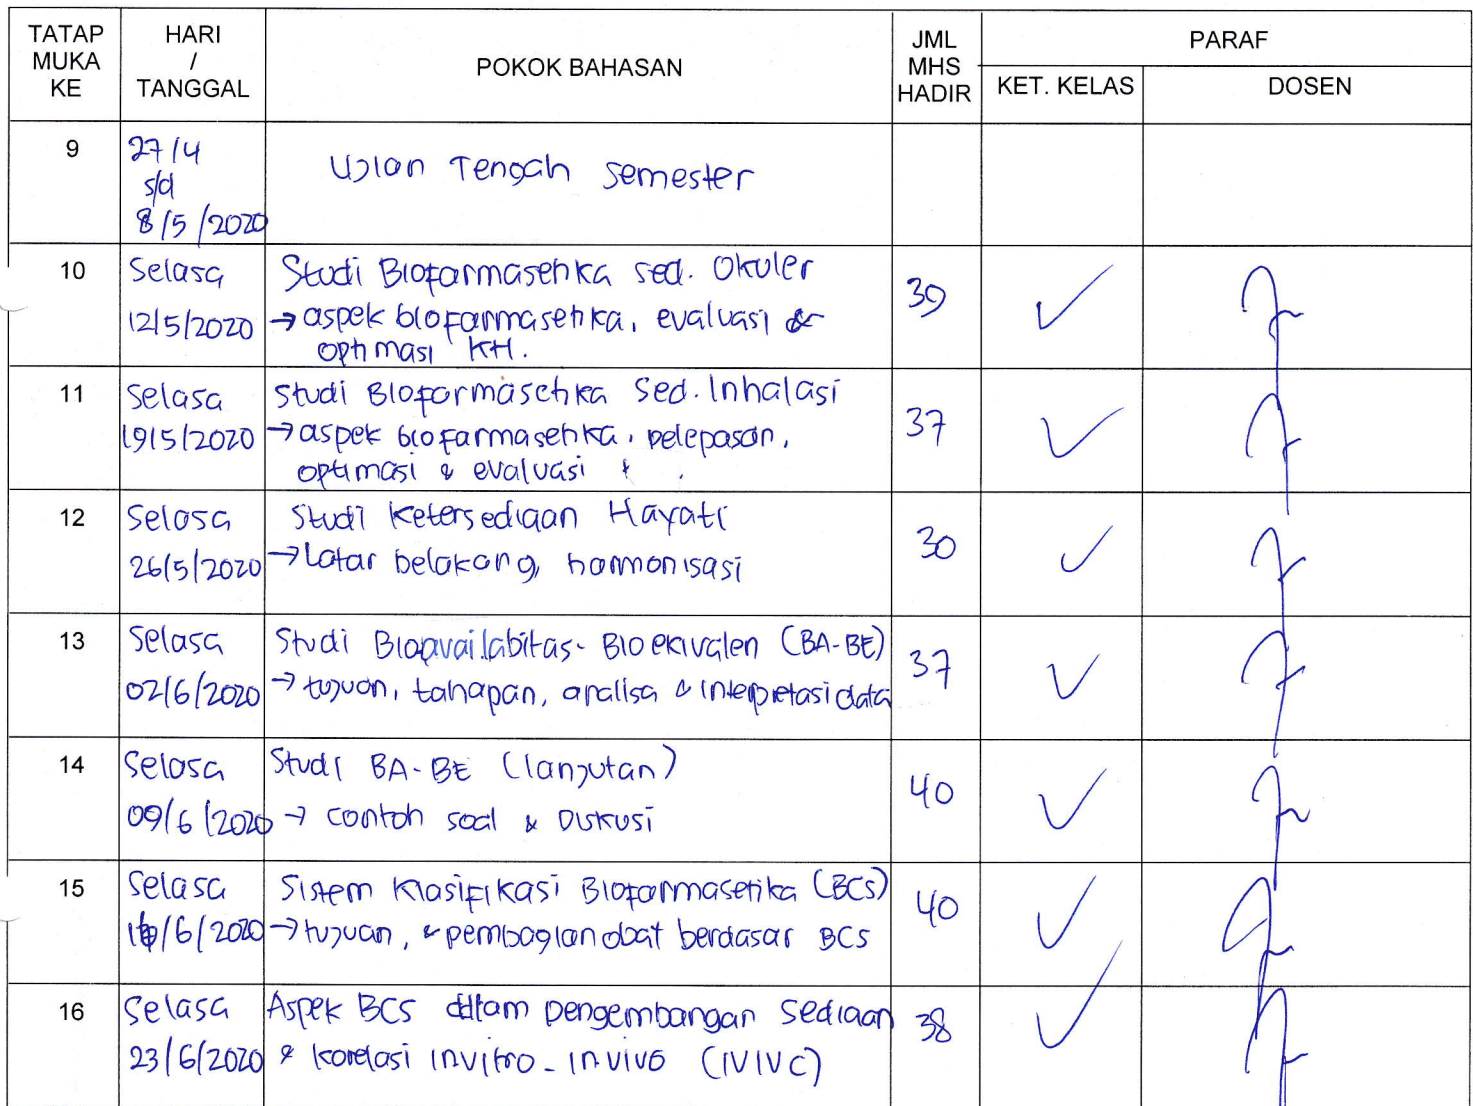 TATAP MUKA KE
HARI / TANGGAL
POKOK BAHASAN
JML MHS HADIR
PARAF
KET. KELAS
DOSEN
9
27/4
s/d
8/5/2020
Ujian Tengah Semester
10
Selasa
12/5/2020
Studi Biofarmasetika sed. Okuler
→ aspek biofarmasetika, evaluasi &
optimasi KH.
39
11
Selasa
19/5/2020
Studi Biofarmasetika Sed. Inhalasi
→ aspek biofarmasetika, pelepasan,
optimasi & evaluasi
37
12
Selasa
26/5/2020
Studi Ketersediaan Hayati
→ Latar belakang, harmonisasi
30
13
Selasa
02/6/2020
Studi Bioavailabitas - Bioekivalen (BA-BE)
→ tujuan, tahapan, analisa & interpretasi data
37
14
Selasa
09/6/2020
Studi BA-BE (lanjutan)
→ contoh soal & Diskusi
40
15
Selasa
16/6/2020
Sistem Klasifikasi Biofarmasetika (BCS)
→ tujuan, & pembagian obat berdasar BCS
40
16
Selasa
23/6/2020
Aspek BCS dalam pengembangan Sediaan
& korelasi invitro - invivo (IVIVC)
38